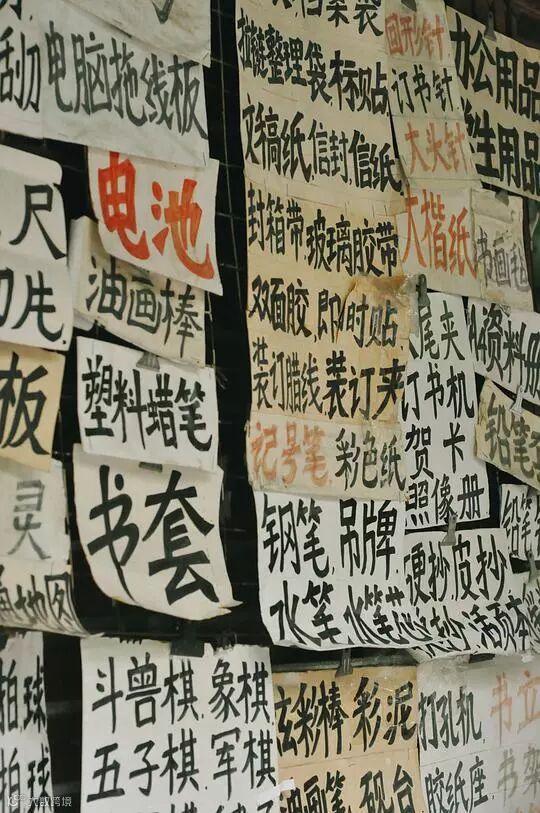 刮刀
电脑拖线板
档案袋
拉链整理袋 标贴
文稿纸.信封.信纸
封箱带 玻璃胶带
双面胶,即时贴
装订腊线,装订夹
记号笔,彩色纸
回形针
订书针
大头针
大楷纸
办公用品
学生用品
书画毡
尺
电池
油画棒
塑料蜡笔
书套
板
灵
地图
尾夹
订书机
贺卡
照像册
A4资料册
铅笔
铅笔
钢笔.吊牌
水笔.水笔芯
硬抄.皮抄
活页本
拍球
拍球
斗兽棋.象棋
五子棋.军棋
炫彩棒 彩泥
油画笔 砚台
打孔机
胶纸座
书立
书架
大数跨境